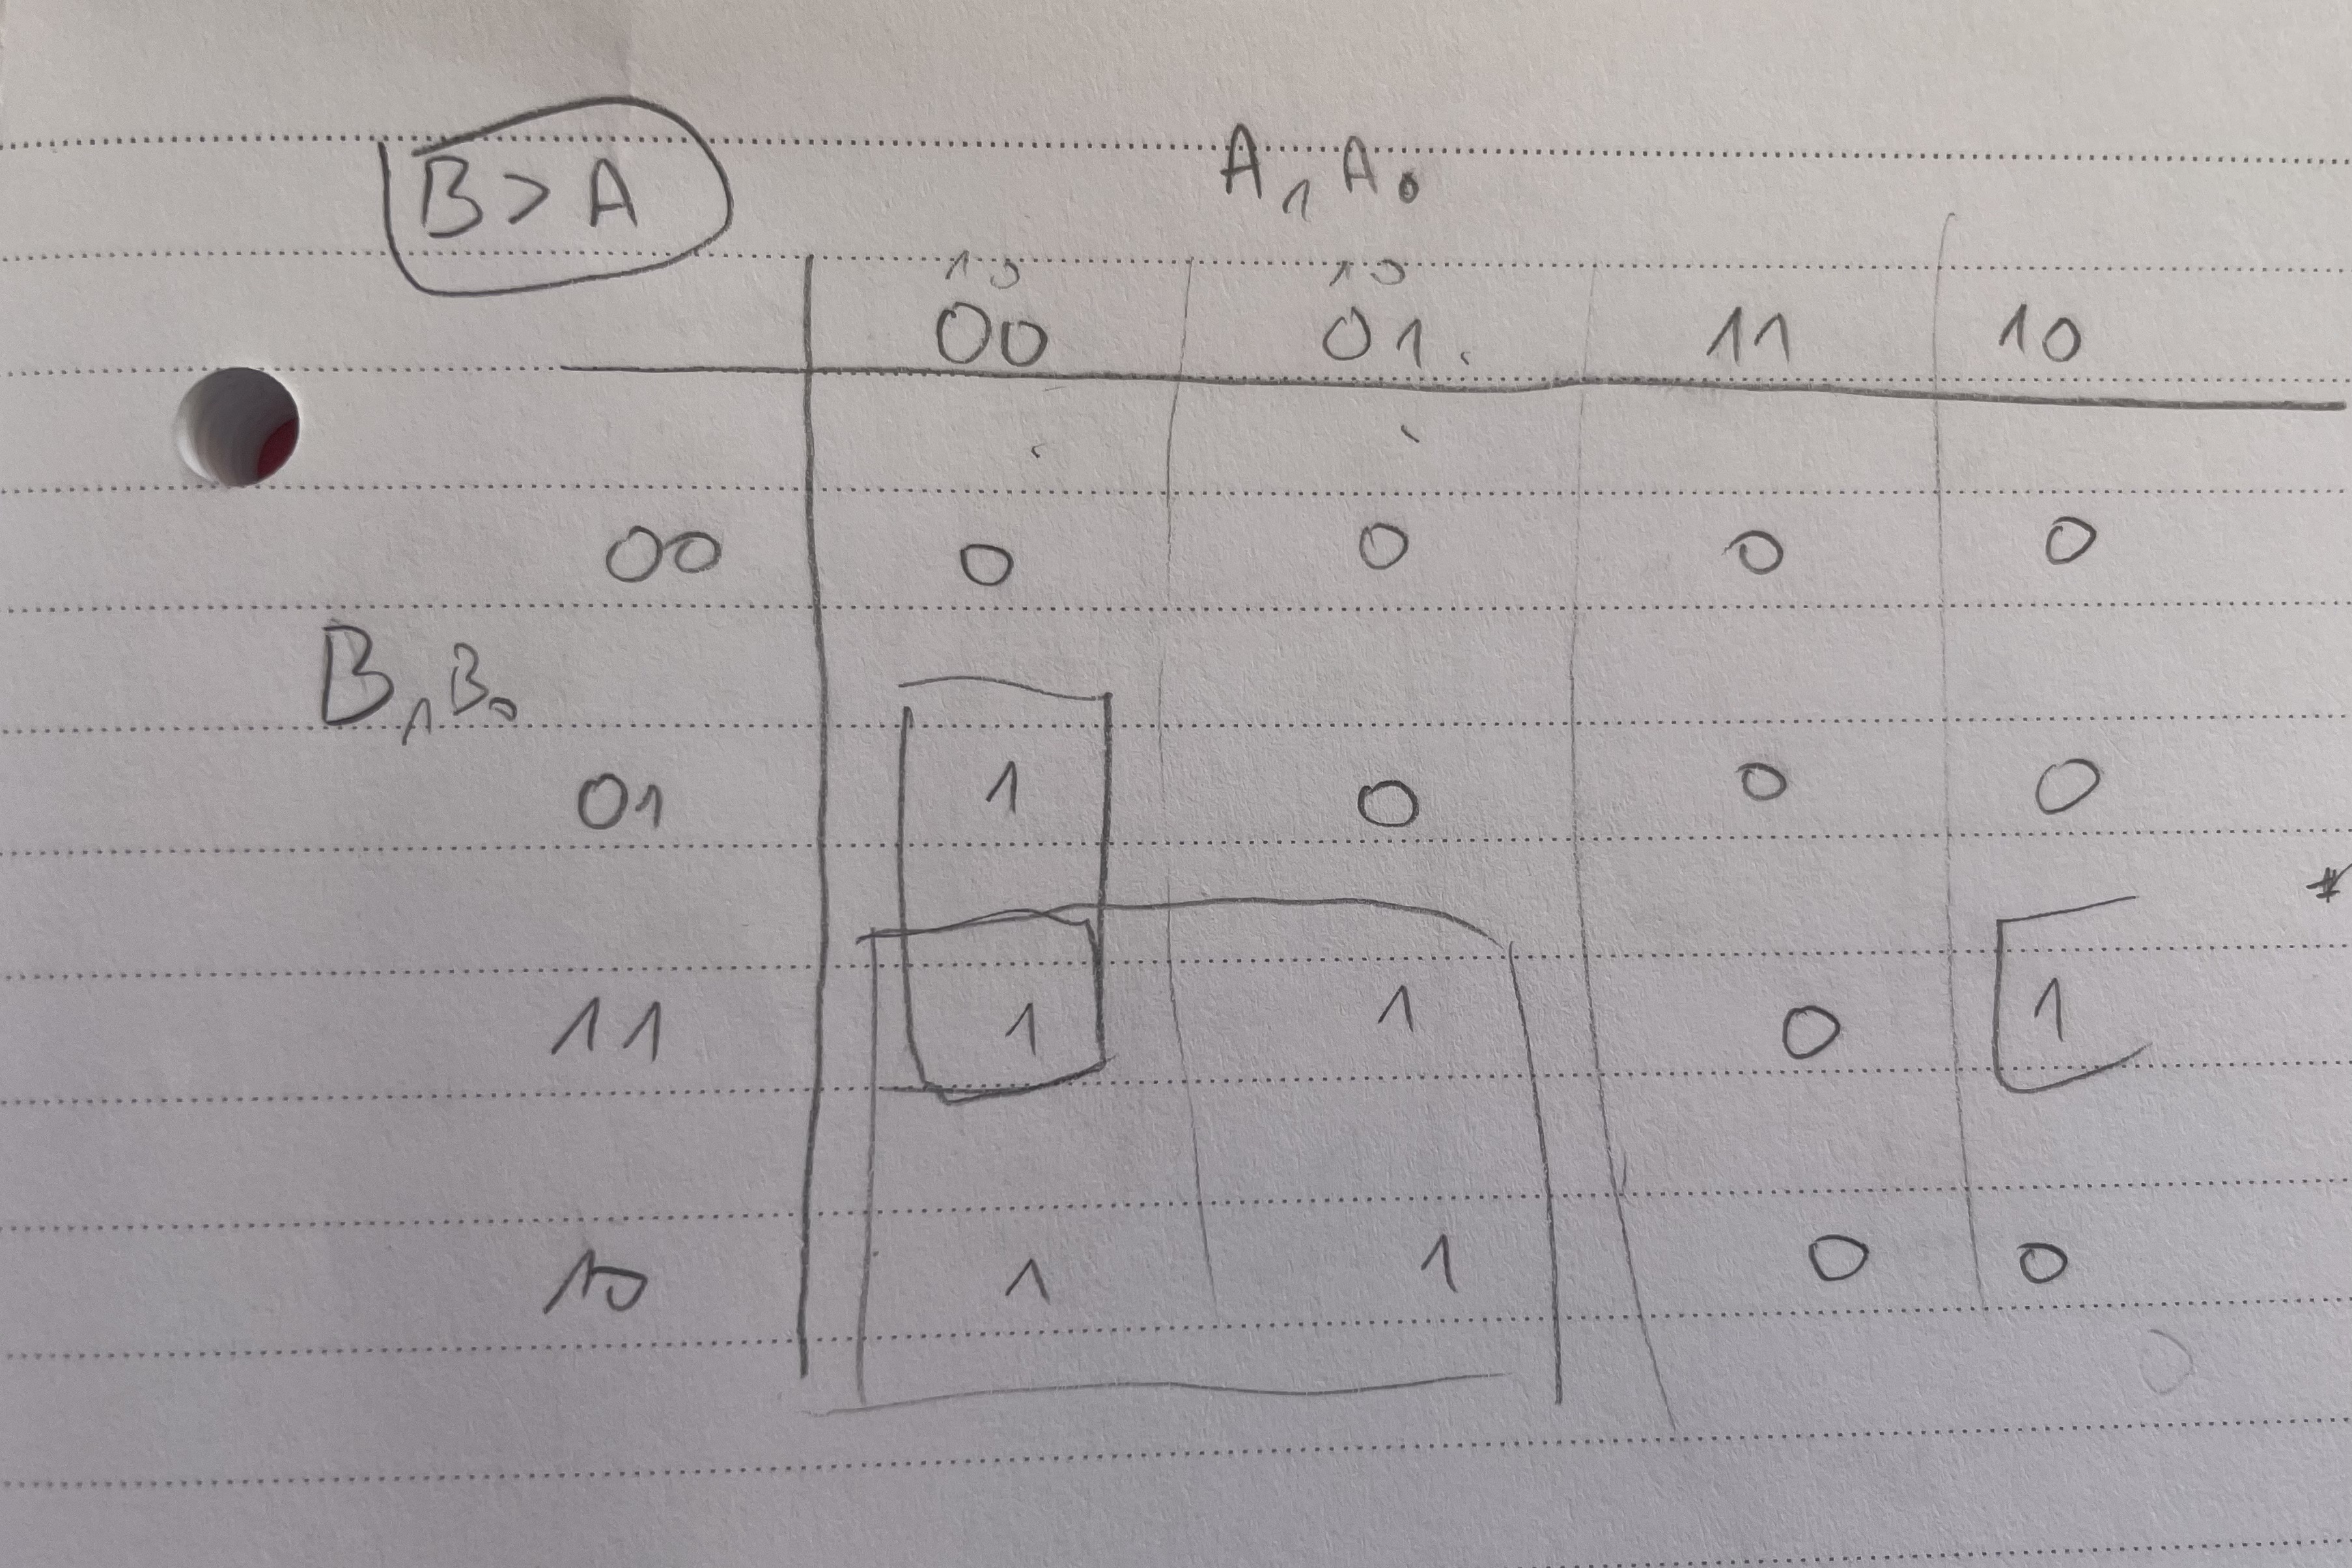 B > A
A₁ A₀
1 0 1 0
00 01 11 10
00 0 0 0 0
B₁ B₀
01 1 0 0 0
11 1 1 0 1
10 1 1 0 0